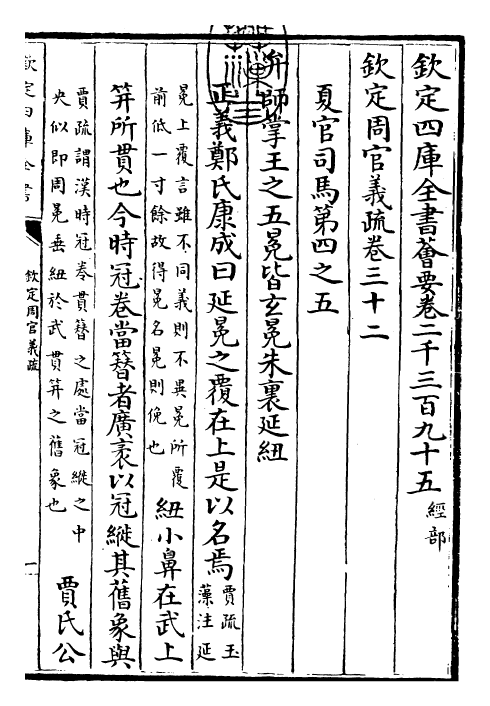 欽定四庫全書薈要卷二千三百九十五 經部
欽定周官義疏卷三十二
夏官司馬第四之五
弁師掌王之五冕皆玄冕朱裏延紐
正義鄭氏康成曰延冕之覆在上是以名焉 賈疏玉藻注延
冕上覆言雖不同義則不異冕所覆前低一寸餘故得冕名冕則俛也 紐小鼻在武上
笄所貫也今時冠卷當簪者廣袤以冠縰其舊象與
賈疏謂漢時冠卷貫簪之處當冠縰之中央似即周冕垂紐於武貫笄之舊象也 賈氏公
欽定四庫全書
欽定周官義疏
一